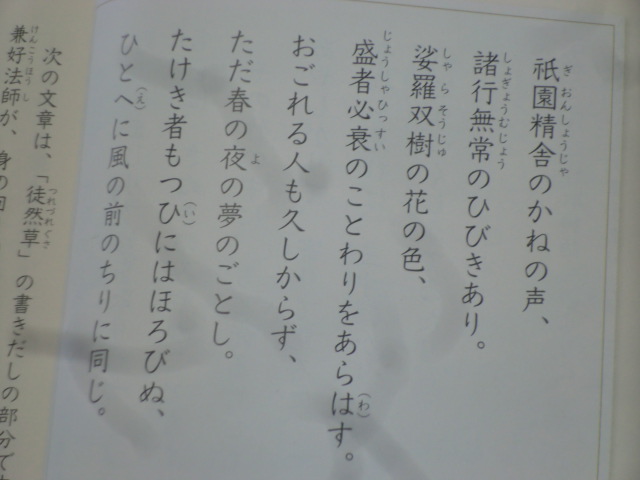 祇園精舎のかねの声、
諸行無常のひびきあり。
娑羅双樹の花の色、
盛者必衰のことわりをあらはす。
おごれる人も久しからず、
ただ春の夜の夢のごとし。
たけき者もつひにはほろびぬ、
ひとへに風の前のちりに同じ。
次の文章は、「徒然草」の書きだしの部分で
兼好法師が、身の回